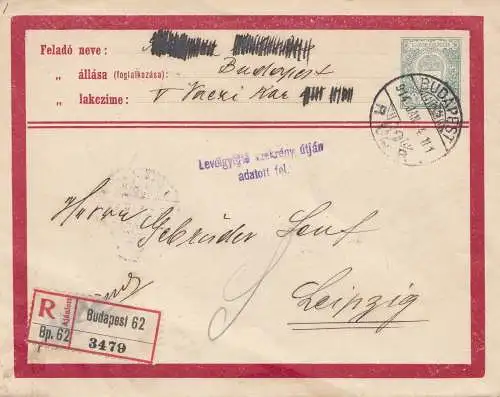 Feladó neve :
„ állása (foglalkozása) : Budapest
„ lakezíme : V Váczi
BUDAPEST
914
Levélgyűjtő szekrény útján
adatott fel.
Herren
Gebrüder Senf
Leipzig
R Ajánlott Budapest 62
Bp. 62 3479